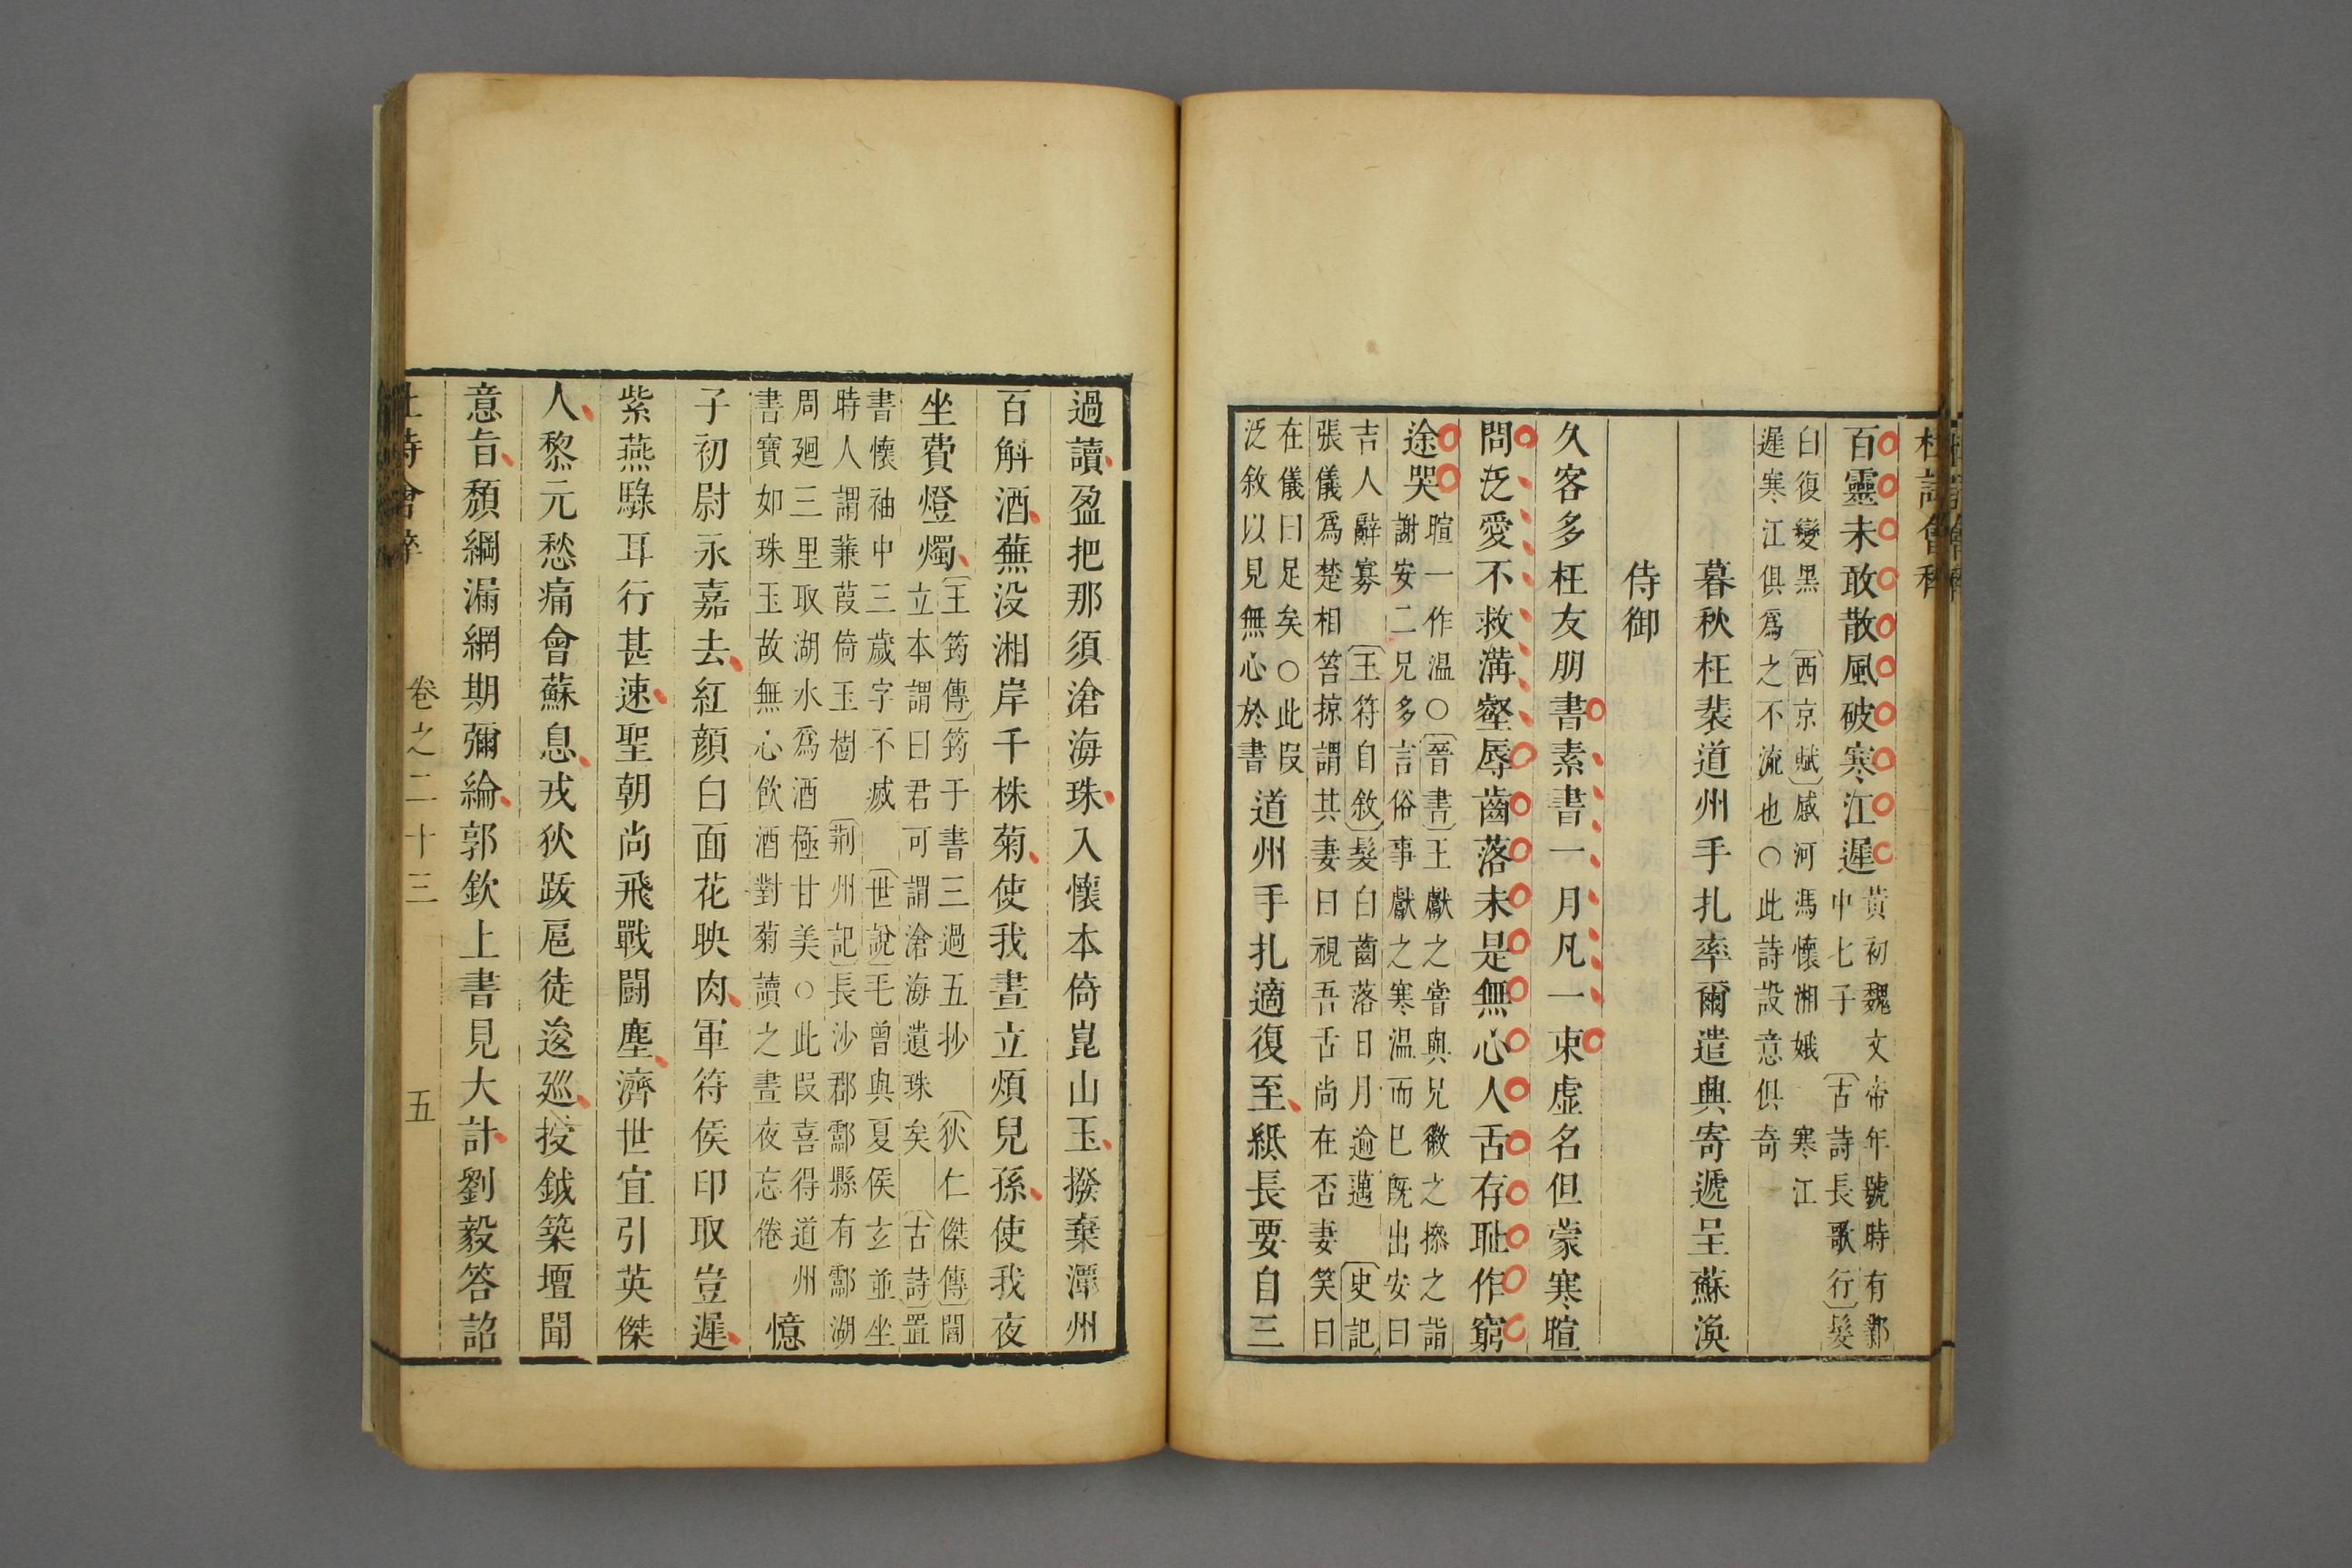 杜詩會稡
百靈未敢散風破寒江遲
黃初魏文帝年號時有鄴
中七子〔古詩長歌行〕髮
白復變黑〔西京賦〕感河馮懷湘娥 寒江
遲寒江俱爲之不流也○此詩設意俱奇
暮秋枉裴道州手扎率爾遣興寄遞呈蘇渙
侍御
久客多枉友朋書素書一月凡一束虛名但蒙寒暄
問泛愛不救溝壑辱齒落未是無心人舌存恥作窮
途哭
暄一作温○〔晉書〕王獻之嘗與兄徽之㨿之詣
謝安二兄多言俗事獻之寒温而巳旣出安曰
吉人辭寡〔王符自敘〕髮白齒落日月逾邁〔史記〕
張儀爲楚相笞掠謂其妻曰視吾舌尚在否妻笑曰
在儀曰足矣○此叚
泛敘以見無心於書
道州手扎適復至紙長要自三
過讀盈把那須滄海珠入懷本倚崑山玉撥棄潭州
百斛酒蕪没湘岸千株菊使我晝立煩兒孫使我夜
坐費燈燭
〔王筠傳〕筠于書三過五抄〔狄仁傑傳〕閻
立本謂曰君可謂滄海遺珠矣〔古詩〕置
書懷袖中三歲字不滅〔世說〕毛曾與夏侯玄並坐
時人謂蒹葭倚玉樹〔荆州記〕長沙郡酃縣有酃湖
周廻三里取湖水爲酒極甘美○此叚喜得道州
書寶如珠玉故無心飲酒對菊讀之晝夜忘倦
憶
子初尉永嘉去紅顔白面花映肉軍符侯印取豈遲
紫燕騄耳行甚速聖朝尚飛戰闘塵濟世宜引英傑
人黎元愁痛會蘇息戎狄跋扈徒逡巡授鉞築壇聞
意旨頹綱漏網期彌綸郭欽上書見大計劉毅答詔
杜詩會稡
卷之二十三
五